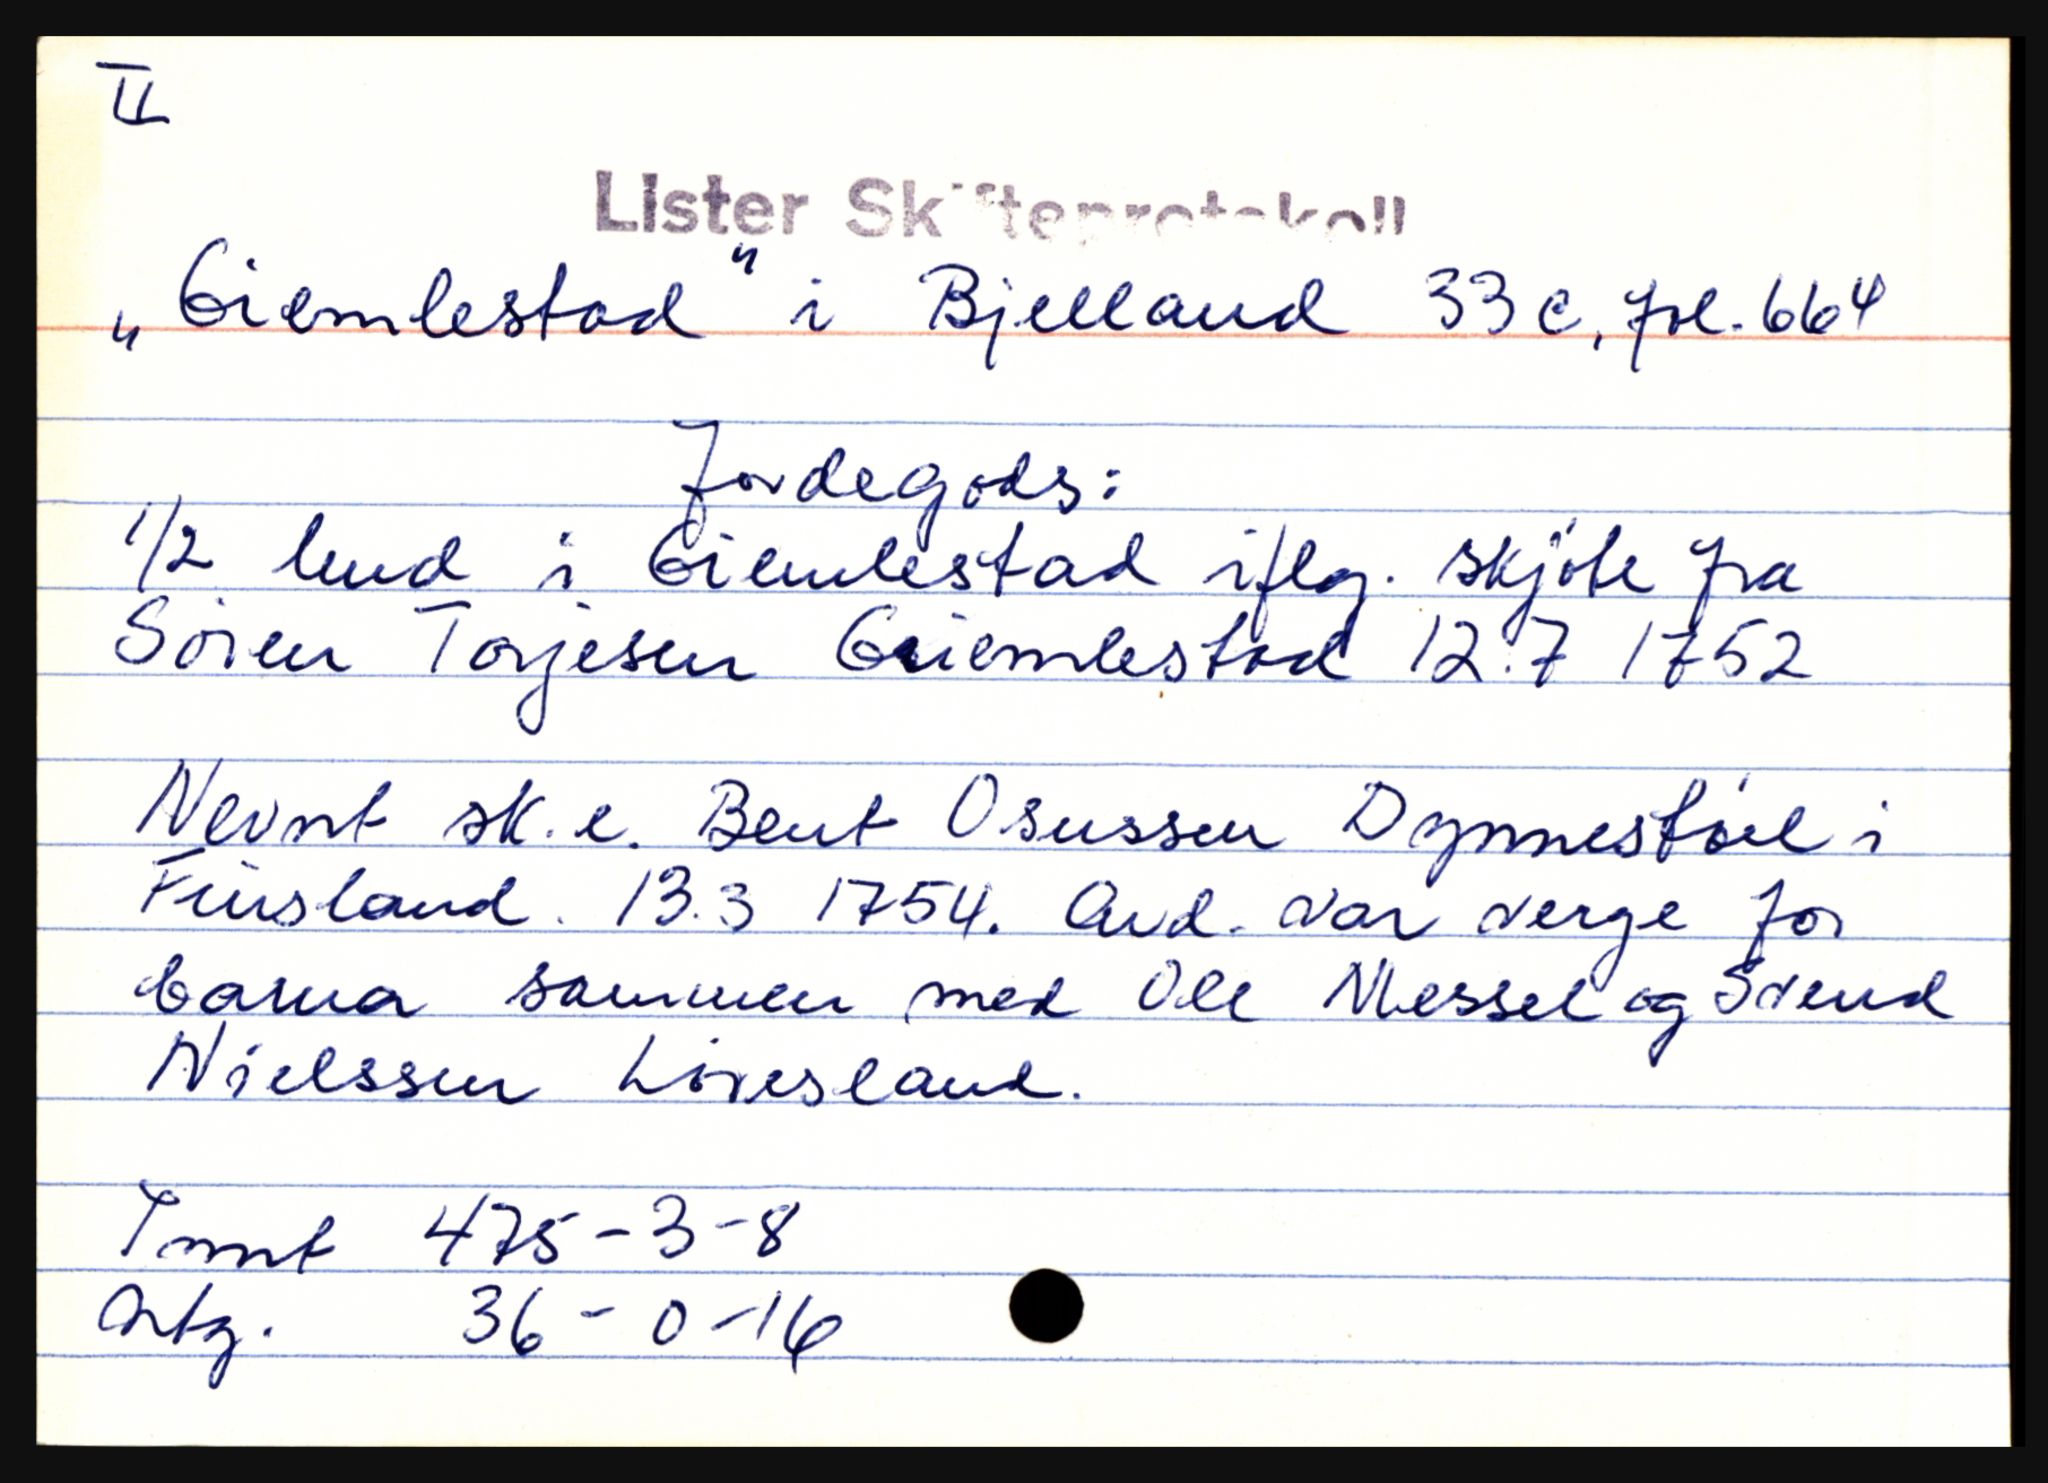 II
Lister Skifteprotokoll
„Giemlestad" i Bjelland 33 c, fol. 664
Jordegods:
1/2 hud i Giemlestad iflg. skjöte fra
Sören Torjesen Giemlestad 12.7 1752
Nevnt sk. e. Bent Osussen Dynnestöel i
Finsland. 13.3 1754. Avd. var verge for
barna sammen med Ole Messel og Svend
Nielssen Lövesland.
Innt 475-3-8
Utg. 36-0-16